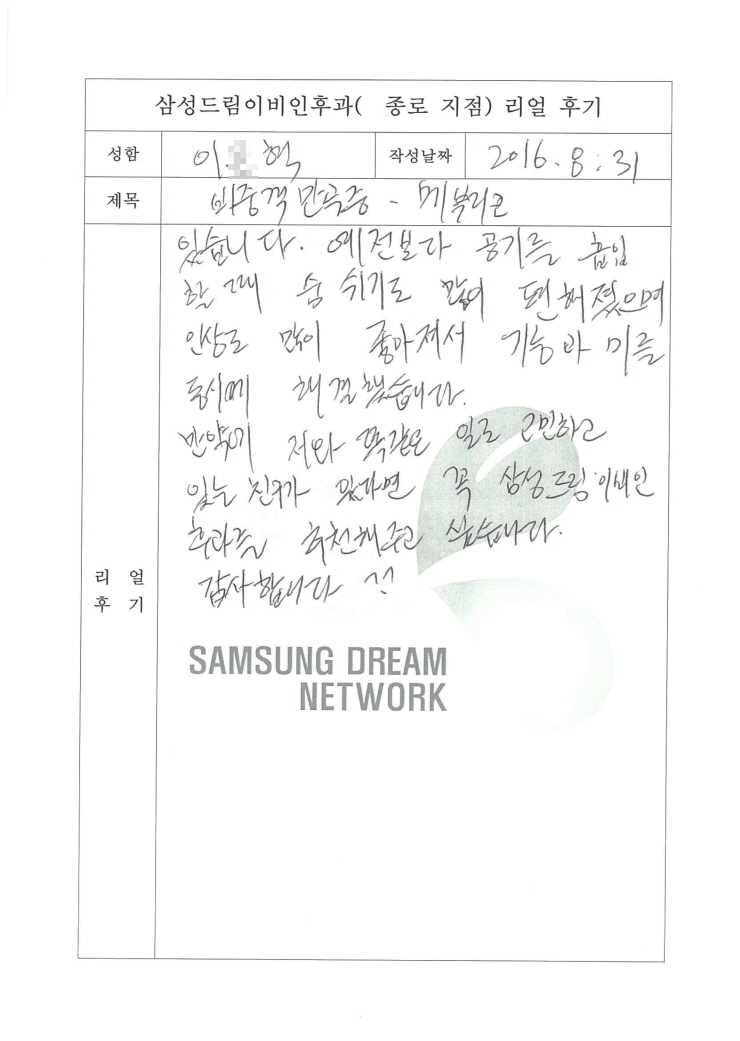 삼성드림이비인후과( 종로 지점) 리얼 후기
성함 이 혁 작성날짜 2016. 8. 31
제목 비중격 만곡증 - 매부리코
있습니다. 예전보다 공기를 흡입
할 때 숨 쉬기도 많이 편해졌으며
인상도 많이 좋아져서 기능과 미를
동시에 해결했습니다.
만약에 저와 똑같은 일로 고민하고
있는 친구가 있다면 꼭 삼성드림이비인
후과를 추천해주고 싶습니다.
감사합니다 ^^
리 얼
후 기
SAMSUNG DREAM
NETWORK